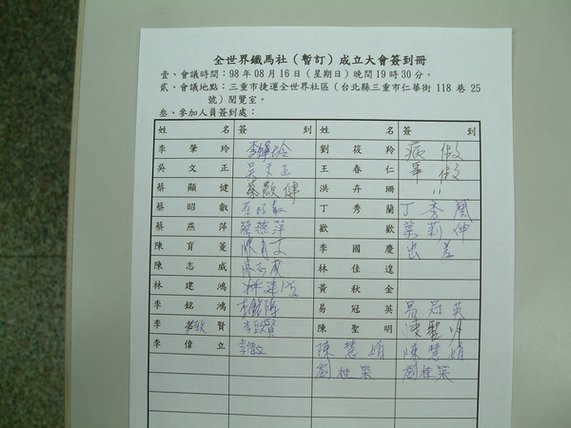 全世界鐵馬社（暫訂）成立大會簽到冊
壹、會議時間：98年08月16日（星期日）晚間19時30分。
貳、會議地點：三重市捷運全世界社區（台北縣三重市仁華街118巷25
號）閱覽室。
叁、參加人員簽到處：
姓 名 簽 到 姓 名 簽 到
李肇玲 李肇玲 劉筱羚 病假
吳文正 吳文正 王春仁 事假
蔡顯健 蔡顯健 洪卉珊 〃
蔡昭叡 丁秀蘭 丁秀蘭
蔡燕萍 蔡燕萍 歡歡 葉莉伸
陳育菱 陳育菱 李國慶 出差
陳志威 陳志威 林佳遑
林建鴻 林建鴻 黃秋金
李銘鴻 李銘鴻 易冠英 易冠英
李致賢 李致賢 陳聖明 陳聖明
李偉立 陳慧娟 陳慧娟
劉桂榮 劉桂榮